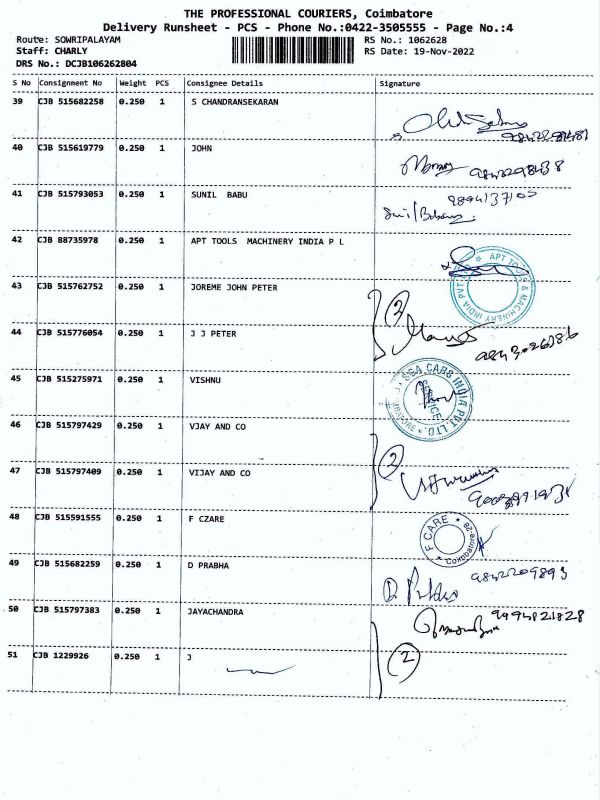 THE PROFESSIONAL COURIERS, Coimbatore
Delivery Runsheet - PCS - Phone No.:0422-3505555 - Page No.:4
Route: SOWRIPALAYAM RS No.: 1062628
Staff: CHARLY RS Date: 19-Nov-2022
DRS No.: DCJB106262804
S No Consignment No Weight PCS Consignee Details Signature
39 CJB 515682258 0.250 1 S CHANDRANSEKARAN
40 CJB 515619779 0.250 1 JOHN
41 CJB 515793053 0.250 1 SUNIL BABU
Sunil Babu
42 CJB 88735978 0.250 1 APT TOOLS MACHINERY INDIA P L
APT TOOLS & MACHINERY INDIA PVT
43 CJB 515762752 0.250 1 JOREME JOHN PETER
2
44 CJB 515776054 0.250 1 J J PETER
45 CJB 515275971 0.250 1 VISHNU
SSA CABS INDIA PVT LTD.
SERVICE
46 CJB 515797429 0.250 1 VJAY AND CO
2
47 CJB 515797409 0.250 1 VIJAY AND CO
48 CJB 515591555 0.250 1 F CZARE
F CARE * Coimbatore-28
49 CJB 515682259 0.250 1 D PRABHA
9842209893
D. Prabha
50 CJB 515797383 0.250 1 JAYACHANDRA
9994821828
51 CJB 1229926 0.250 1 J
2